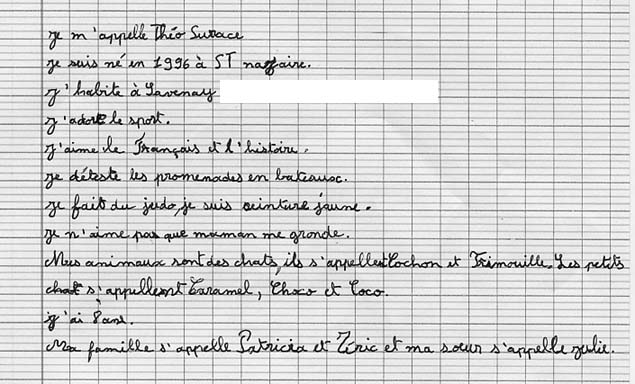 je m'appelle Théo Surace
je suis né en 1996 à ST nazaire.
j'habite à Savenay
j'adore le sport.
j'aime le Français et l'histoire.
je déteste les promenades en bateaux.
je fait du judo, je suis ceinture jaune.
je n'aime pas que maman me gronde.
Mes animaux sont des chats, ils s'appellent Cochon et Frimouille. Les petits
chat s'appellent Caramel, Choco et Coco.
j'ai 8 ans.
Ma famille s'appelle Patricia et Éric et ma sœur s'appelle julie.